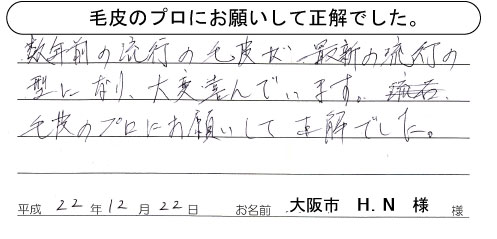 毛皮のプロにお願いして正解でした。
数年前の流行の毛皮が最新の流行の
型になり、大変喜んでいます。流石、
毛皮のプロにお願いして正解でした。
平成 22 年 12 月 22 日 お名前 大阪市 H.N 様 様